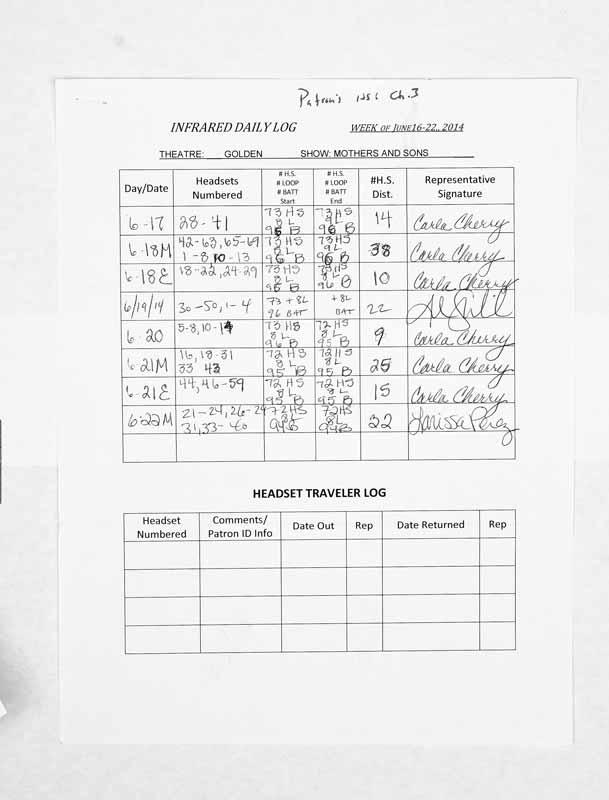 Patron's use Ch. 3
INFRARED DAILY LOG WEEK OF JUNE16-22, 2014
THEATRE: GOLDEN SHOW: MOTHERS AND SONS
Day/Date Headsets Numbered # H.S. # LOOP # BATT Start # H.S. # LOOP # BATT End #H.S. Dist. Representative Signature
6-17 28-41 73 HS 8L 96 B 73 HS 8L 96 B 14 Carla Cherry
6-18M 42-63, 65-69 1-8, 10-13 73 HS 8L 96 B 73 HS 8L 96 B 38 Carla Cherry
6-18E 18-22, 24-29 73 HS 8L 96 B 73 HS 8L 96 B 10 Carla Cherry
6/19/14 30-50, 1-4 73 + 8L 96 BAT + 8L BAT 22
6-20 5-8, 10-14 73 HS 8L 96 B 72 HS 8L 95 B 9 Carla Cherry
6-21M 16, 18-31 33 43 72 HS 8L 95 B 72 HS 8L 95 B 25 Carla Cherry
6-21E 44, 46-59 72 HS 8L 95 B 72 HS 8L 95 B 15 Carla Cherry
6-22M 21-24, 26-29 31, 33-40 72 HS 8L 94 B 72 HS 8L 94 B 32 Larissa Perez
HEADSET TRAVELER LOG
Headset Numbered Comments/ Patron ID Info Date Out Rep Date Returned Rep